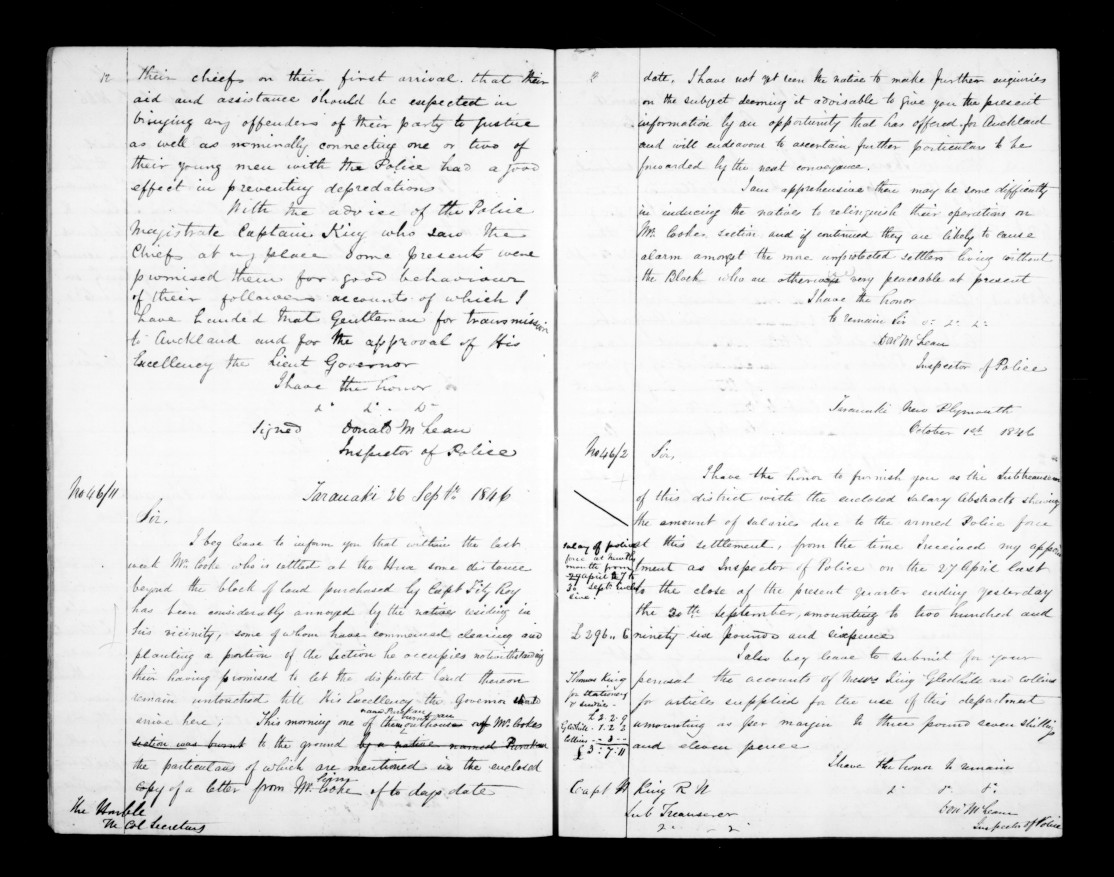 12 their chiefs on their first arrival that their
aid and assistance should be expected in
bringing any offenders of their party to Justice
as well as nominally connecting one or two of
their young men with the Police had a good
effect in preventing depredations
With the advice of the Police
Magistrate Captain King who saw the
Chiefs at my place some presents were
promised them for good behaviour
of their followers accounts of which I
have handed that Gentleman for transmission
to Auckland and for the approval of His
Excellency the Lieut Governor
I have the honor
Signed Donald McLean
Inspector of Police
No 46/11 Taranaki 26 Septr 1846
Sir,
I beg leave to inform you that within the last
week Mr Cooke who is settled at the Hua some distance
beyond the block of land purchased by Capt Fitz Roy
has been considerably annoyed by the natives residing in
his vicinity, some of whom have commenced clearing and
planting a portion of the section he occupies notwithstanding
their having promised to let the disputed land thereon
remain untouched till His Excellency the Governor should
arrive here; This morning one of them
burnt an outhouse of Mr Cookes
section was burnt to the ground by a native named
the particulars of which are mentioned in the enclosed
copy of a letter from Mr Cooke of to days date
The Honble
The Col Secretary
date. I have not yet seen the native to make further enquiries
on the subject deeming it advisable to give you the present
information by an opportunity that has offered for Auckland
and will endeavour to ascertain further particulars to be
forwarded by the next conveyance.
I am apprehensive there may be some difficulty
in inducing the natives to relinquish their operations on
Mr. Cookes section and if continued they are likely to cause
alarm amongst the more unprotected settlers living without
the Block who are otherwise very peaceable at present
I have the honor
to remain Sir
Don McLean
Inspector of Police
Taranaki New Plymouth
October 1st 1846
No 46/2 Sir,
I have the honor to furnish you as the Subtreasurer
of this district with the enclosed Salary Abstracts shewing
the amount of salaries due to the armed Police force
at this settlement, from the time I received my appoint
ment as Inspector of Police on the 27 April last
to the close of the present quarter ending yesterday
the 30th September, amounting to two hundred and
ninety six pounds and sixpence
salary of police
force
month from
27 april to
30 Septr inclu
sive.
£296 " 6
I also beg leave to submit for your
perusal the accounts of Messrs King Gledhill and Collins
for articles supplied for the use of this department
amounting as per margin to three pound seven shillings
and eleven pence
Thomas King
for stationery
& sundries
£ 2.2.9
Gledhill . 1.2.2
Collins - - 3 - -
£ 3:7.11
I have the honor to remain
Don McLean
Inspector of Police
Capt H King R N
Sub Treasurer